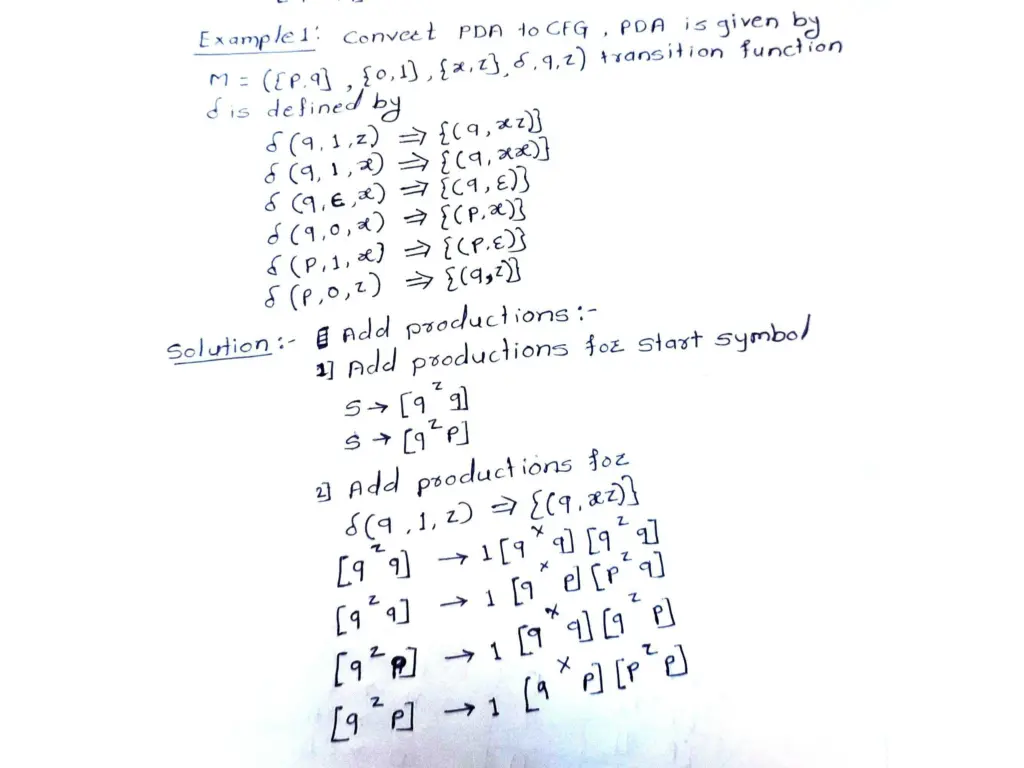 Example 1: Convert PDA to CFG, PDA is given by
M = ({p,q}, {0,1}, {x,z}, δ, q, z) transition function
δ is defined by
δ(q,1,z) ⇒ {(q,xz)}
δ(q,1,x) ⇒ {(q,xx)}
δ(q,ε,x) ⇒ {(q,ε)}
δ(q,0,x) ⇒ {(p,x)}
δ(p,1,x) ⇒ {(p,ε)}
δ(p,0,z) ⇒ {(q,z)}
Solution:- Add productions:-
1] Add productions for start symbol
S → [q^z q]
S → [q^z p]
2] Add productions for
δ(q,1,z) ⇒ {(q,xz)}
[q^z q] → 1 [q^x q] [q^z q]
[q^z q] → 1 [q^x p] [p^z q]
[q^z p] → 1 [q^x q] [q^z p]
[q^z p] → 1 [q^x p] [p^z p]